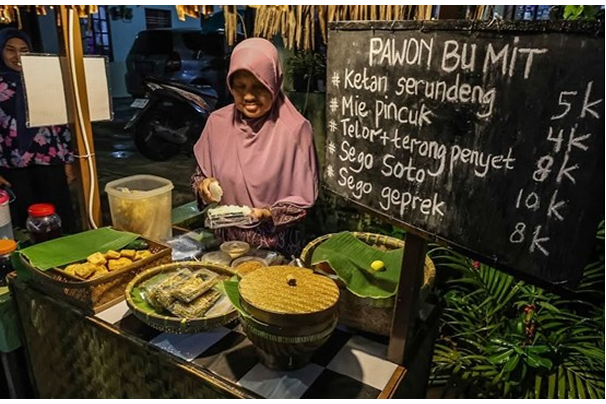 PAWON BU MIT
# Ketan serundeng 5K
# Mie pincuk 4K
# Telor+terong penyet 8K
# Sego Soto 10K
# Sego geprek 8K